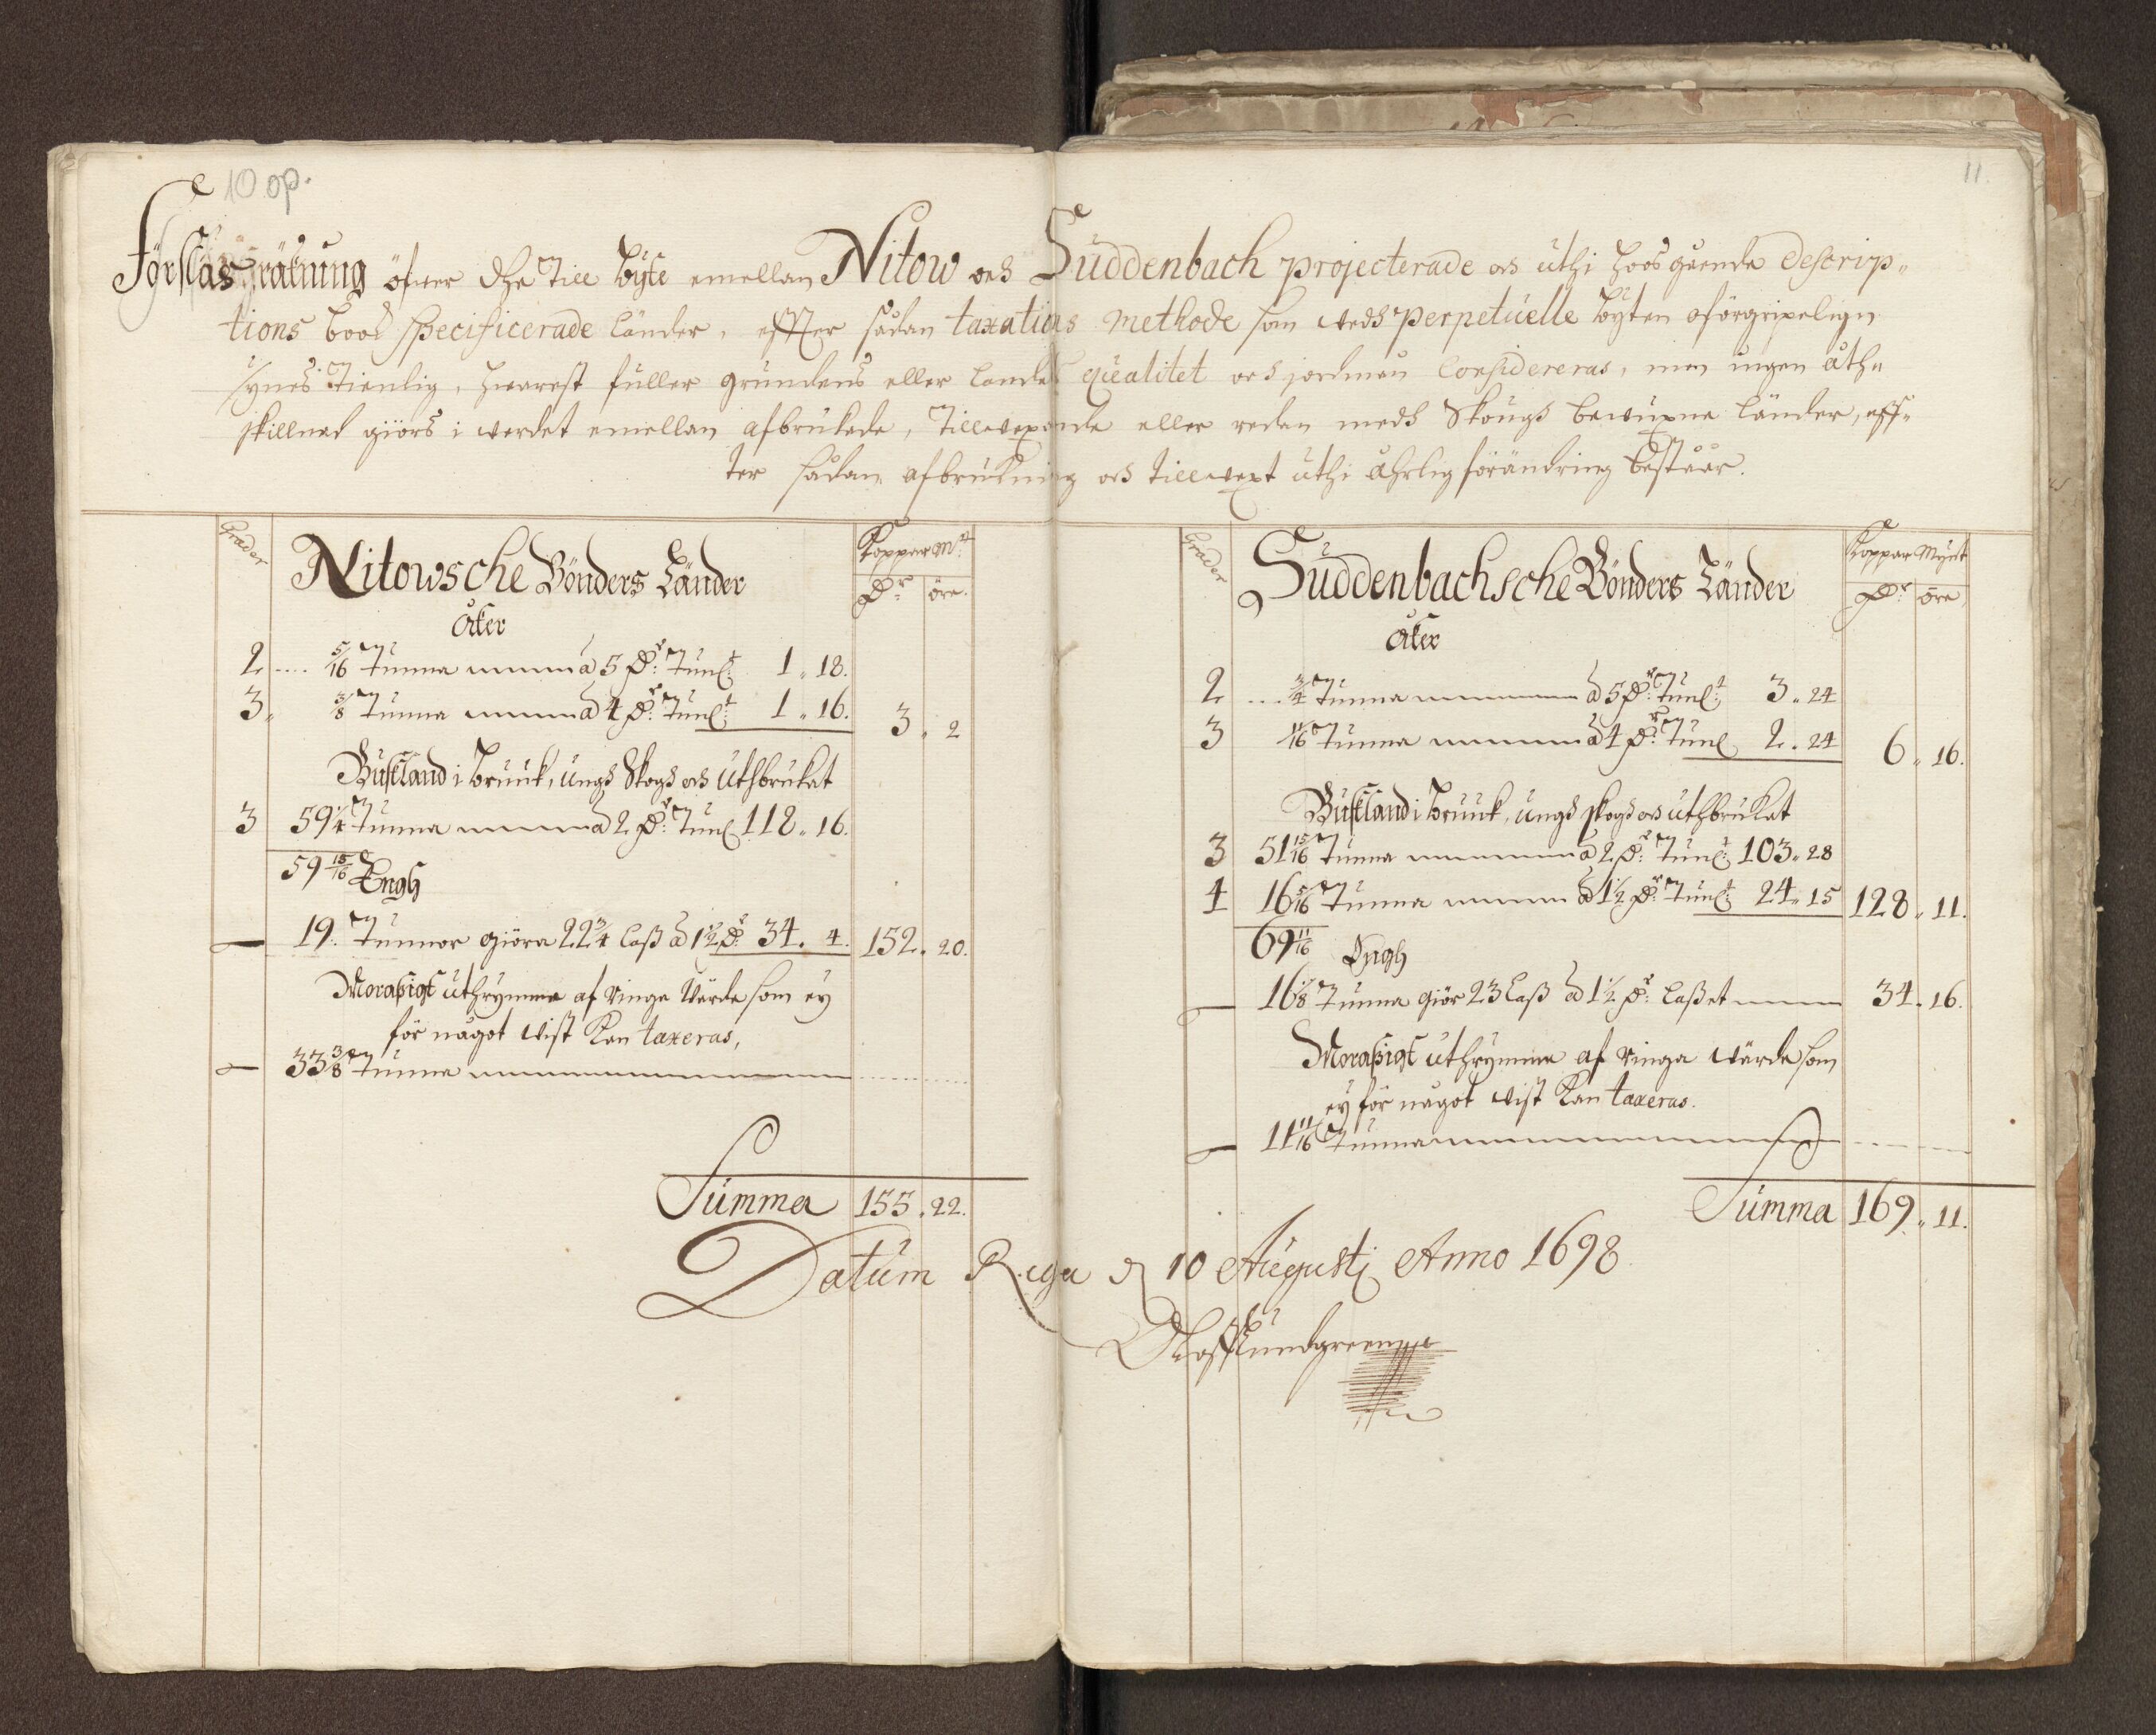 10 op.
11.
Förslags räkning öfwer dhe Till Byte emellan Nitow och Suddenbach projecterade och uthi hoosgående descrip„
tions book specificerade länder, effter sådan taxations methode som wedh perpetuelle Byten oförgripeligen
synes Tienlig, hwarest fuller grundens eller landetz qualitet och jordmån Considereras, men ingen åth„
skillnad giörs i werdet emellan afbrukade, Tillwexande eller redan medh Skough bewuxne länder, eff„
ter sådan afbrukning och tillwext uthi åhrlig förändring bestäår.
Grader
Nitowsche Bönders Länder
Koppar Mt
Dr öre.
Åker
2 .... 5/16 Tunna à 5 Dr: Tunl: 1 „ 18.
3 „ 3/8 Tunna à 4 Dr: Tunlt: 1 „ 16. 3 „ 2
Buskland i bruuk, ungh Skogh och Uthbrukat
3 59 1/4 Tunna à 2 Dr: Tunl 118 „ 16.
59 15/16 Engh
— 19. Tunnor giöra 22 3/4 lass à 1 1/2 Dr: 34. 4. 152. 20.
Morassigt uthrymme af ringa Wärde som ey
för något wist Kan taxeras,
— 33 3/8 Tunna
Summa 155. 22.
Grader
Suddenbachsche Bönders Länder
Koppar Mynt
Dr: öre
Åker
2 .... 3/4 Tunna à 5 Dr: Tunlt: 3 „ 24
3 11/16 Tunna à 4 Dr: Tunl 2. 24 6 „ 16.
Buskland i bruuk, ungh skogh och uthbrukat
3 51 15/16 Tunna à 2 Dr: Tunl: 103 „ 28
4 16 5/16 Tunna à 1 1/2 Dr: Tunlt: 24 „ 15 128 „ 11.
69 11/16 Engh
— 16 1/8 Tunna giör 23 Lass à 1 1/2 Dr: Lasset 34. 16.
Morassigt uthrymme af ringa wärde som
ey för något wist Kan taxeras.
— 11 11/16 Tunna
Summa 169 „ 11.
Datum Riga d 10 Augustj Anno 1698
Oloff Lundgreen